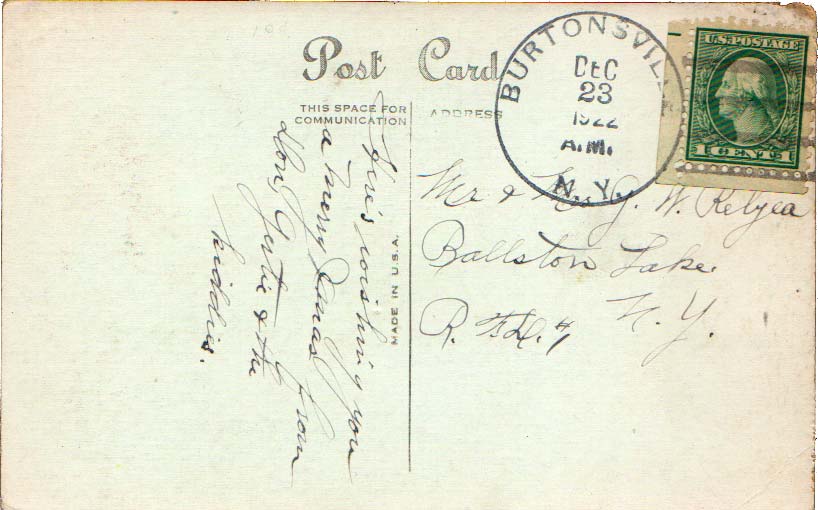 Post Card
THIS SPACE FOR
COMMUNICATION
ADDRESS
BURTONSVILLE
DEC
23
1922
A.M.
N.Y.
U.S. POSTAGE
1 CENT 1
Here's wishing you
a merry Xmas from
Don, Gertie & the
kiddies.
MADE IN U.S.A.
Mr & Mrs G. W. Relyea
Ballston Lake
N. Y.
R. F. D. #1